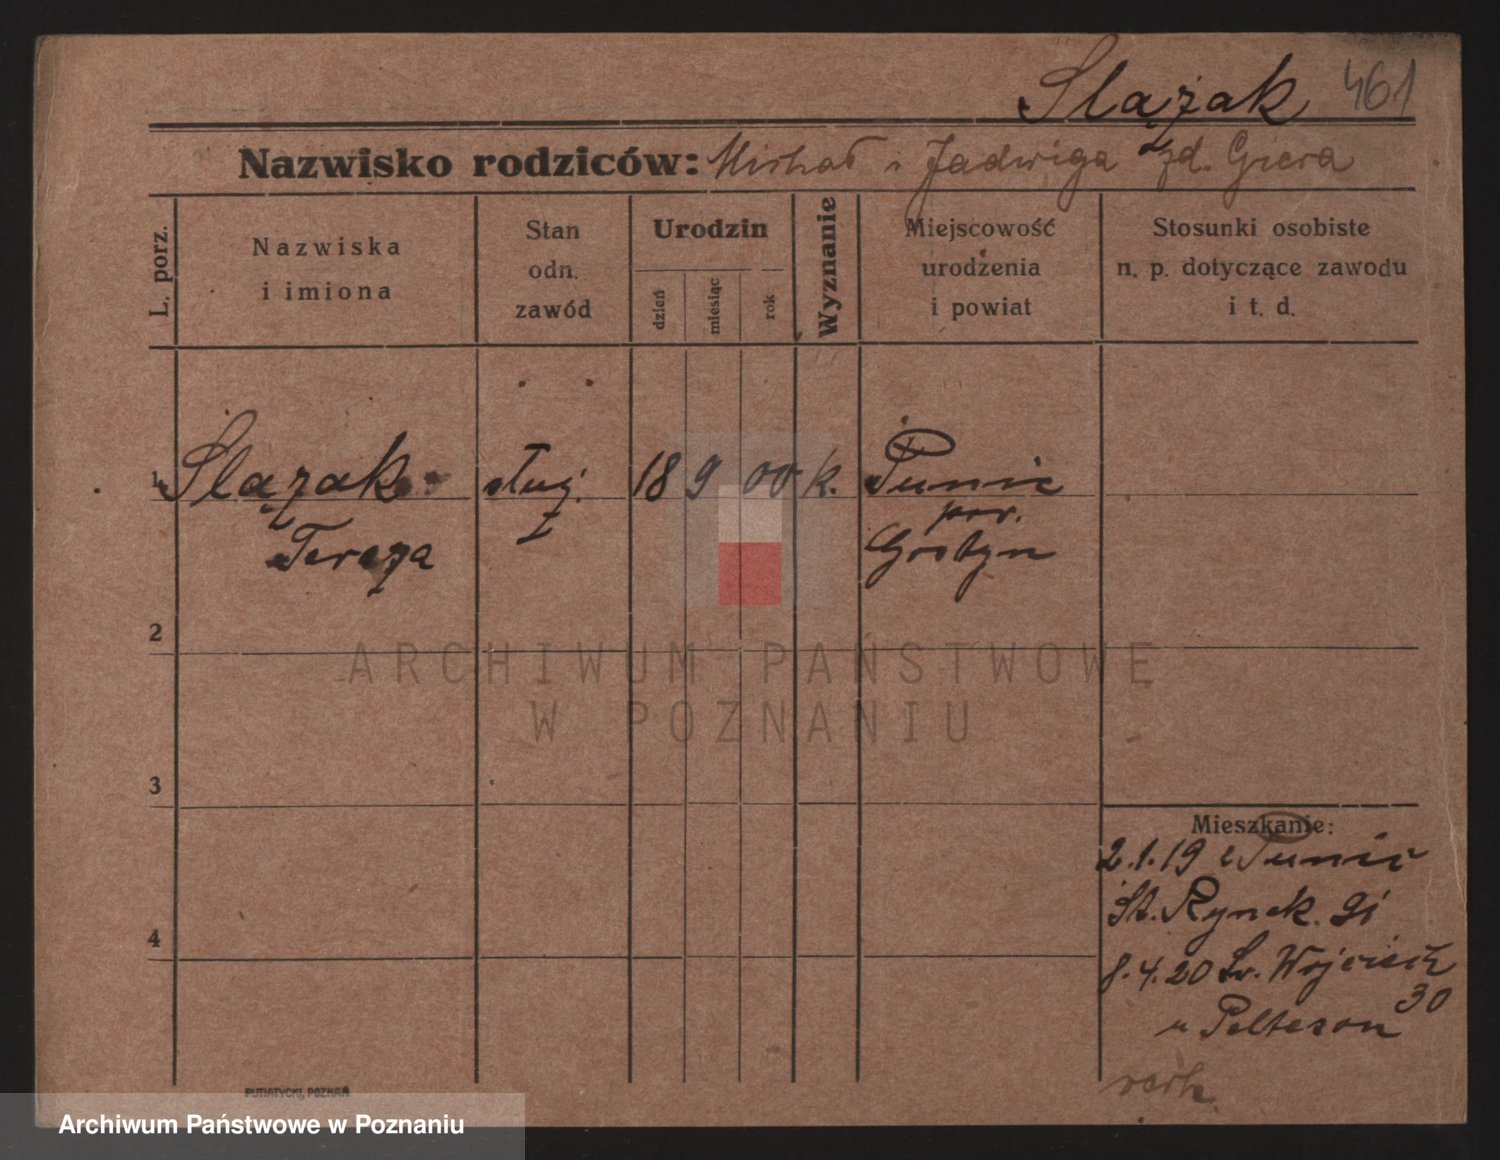 Ślązak 461
Nazwisko rodziców: Michał i Jadwiga zd. Giera
L. porz.
Nazwiska
i imiona
Stan
odn.
zawód
Urodzin
dzień
miesiąc
rok
Wyznanie
Miejscowość
urodzenia
i powiat
Stosunki osobiste
n. p. dotyczące zawodu
i t. d.
1 Ślązak służ. 18 9 00 k. Punic
Tereza pow.
Gostyn
2
3
4
Mieszkanie:
2.1.19 z Punic
St. Rynek
8.4.20 Św. Wojciech
30
u Pelteson
PUTIATYCKI, POZNAŃ
ARCHIWUM PAŃSTWOWE
W POZNANIU
Archiwum Państwowe w Poznaniu